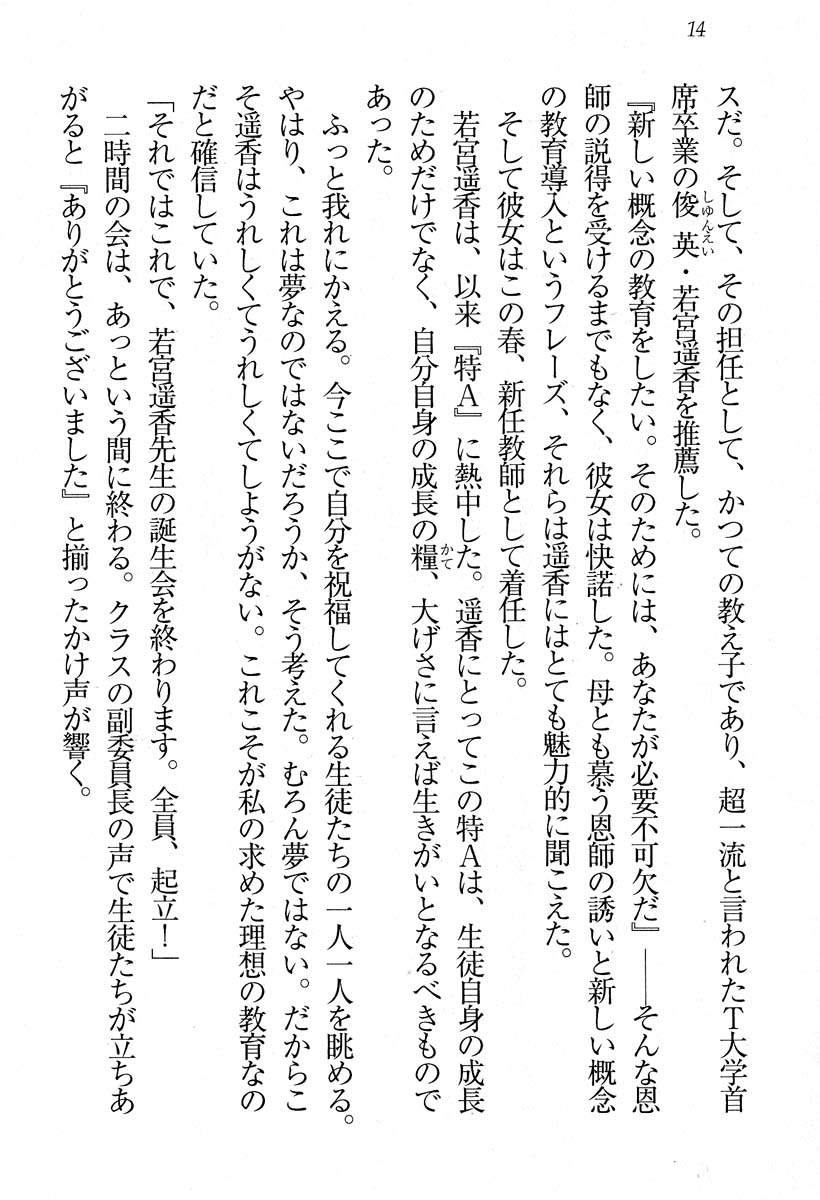 14
スだ。そして、その担任として、かつての教え子であり、超一流と言われたT大学首
席卒業の俊英・若宮遥香を推薦した。
しゅんえい
『新しい概念の教育をしたい。そのためには、あなたが必要不可欠だ』――そんな恩
師の説得を受けるまでもなく、彼女は快諾した。母とも慕う恩師の誘いと新しい概念
の教育導入というフレーズ、それらは遥香にはとても魅力的に聞こえた。
そして彼女はこの春、新任教師として着任した。
若宮遥香は、以来『特A』に熱中した。遥香にとってこの特Aは、生徒自身の成長
のためだけでなく、自分自身の成長の糧、大げさに言えば生きがいとなるべきもので
かて
あった。
ふっと我れにかえる。今ここで自分を祝福してくれる生徒たちの一人一人を眺める。
やはり、これは夢なのではないだろうか、そう考えた。むろん夢ではない。だからこ
そ遥香はうれしくてうれしくてしようがない。これこそが私の求めた理想の教育なの
だと確信していた。
「それではこれで、若宮遥香先生の誕生会を終わります。全員、起立！」
二時間の会は、あっという間に終わる。クラスの副委員長の声で生徒たちが立ちあ
がると『ありがとうございました』と揃ったかけ声が響く。